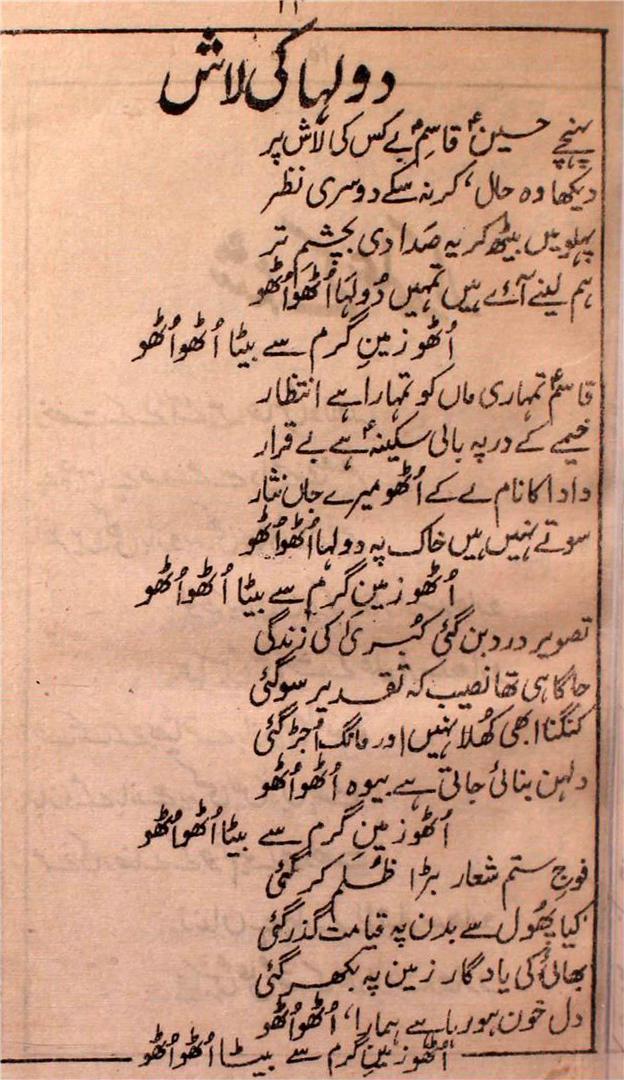 دولہا کی لاش
پہنچے حسینؑ قاسمؑ بے کس کی لاش پر
دیکھا وہ حال، کر نہ سکے دوسری نظر
پہلو میں بیٹھ کر یہ صَدا دی بچشم تر
ہم لینے آئے ہیں تمہیں دُولہَا اُٹھو اُٹھو
اُٹھو زمینِ گرم سے بیٹا اُٹھو اُٹھو
قاسمؑ تمہاری ماں کو تمہارا ہے انتظار
خیمے کے در پہ بالی سکینہؑ ہے بے قرار
دادا کا نام لے کے اُٹھو میرے جاں نثار
سوتے نہیں ہیں خاک پہ دولہا اُٹھو اُٹھو
اُٹھو زمینِ گرم سے بیٹا اُٹھو اُٹھو
تصویر درد بن گئی کبُریٰ کی زندگی
جاگا ہی تھا نصیب کہ تقدیر سو گئی
کنگنا ابھی کھُلا نہیں اور مانگ اُجڑ گئی
دلہن بنائی جاتی ہے بیوہ اُٹھو اُٹھو
اُٹھو زمینِ گرم سے بیٹا اُٹھو اُٹھو
فوجِ ستم شعار بڑا ظُلم کر گئی
کیا پھُول سے بدن پہ قیامت گذر گئی
بھائی کی یادگار زمین پہ بکھر گئی
دل خون ہو رہا ہے ہمارا، اُٹھو اُٹھو
اُٹھو زمینِ گرم سے بیٹا اُٹھو اُٹھو